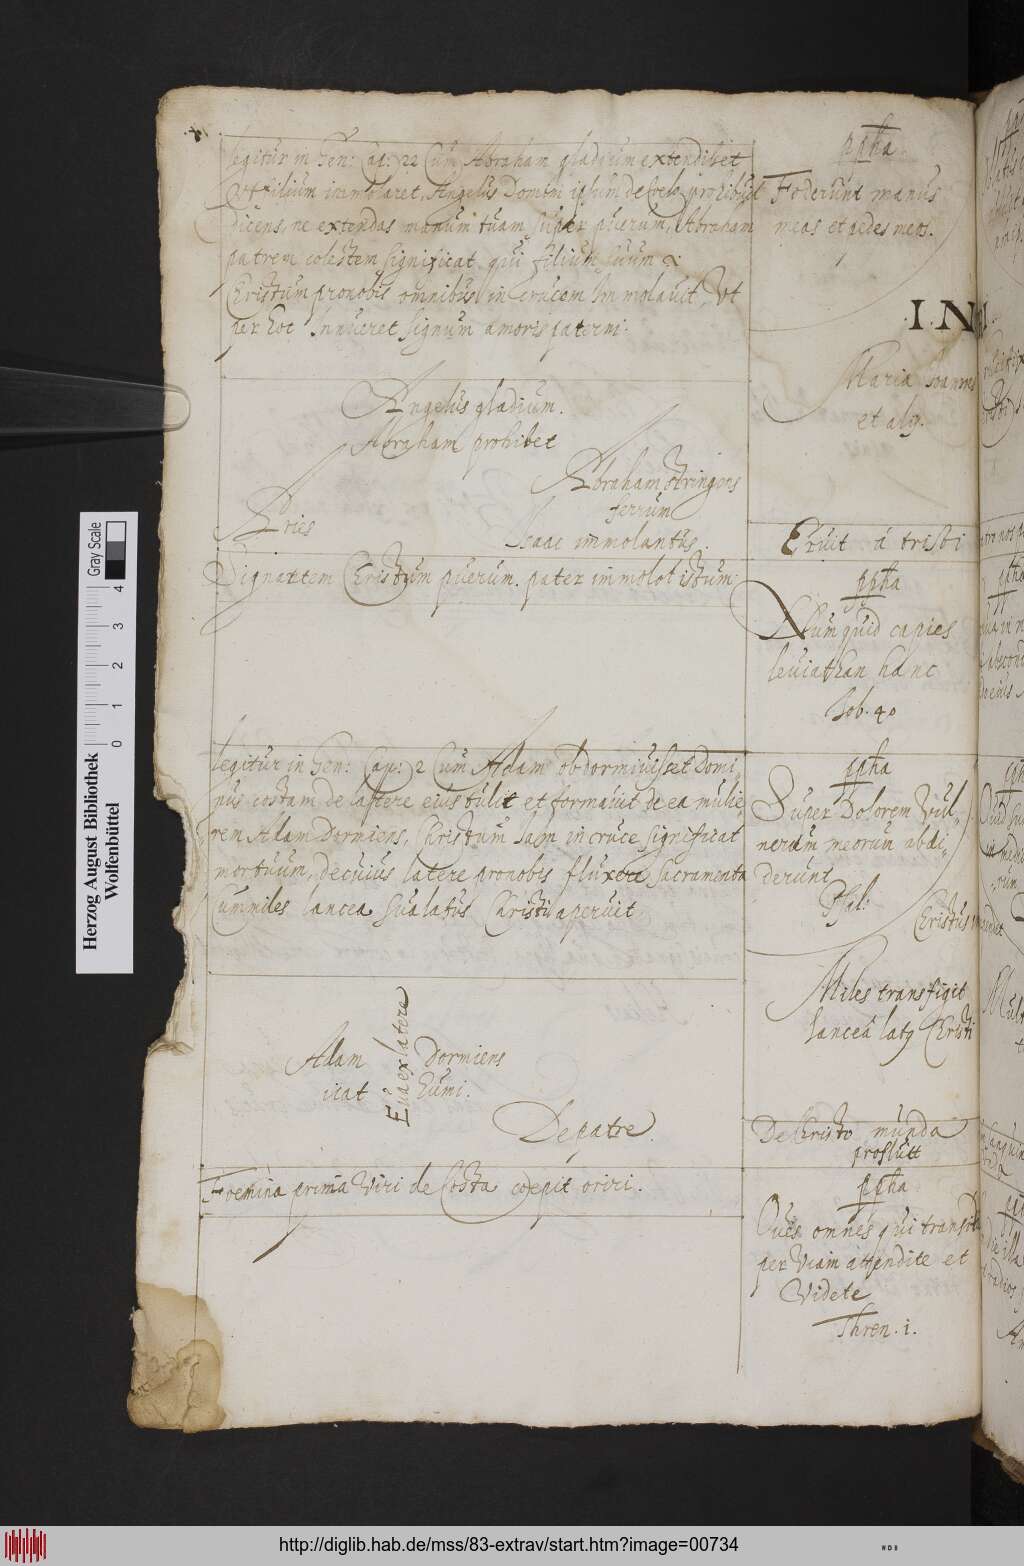 legitur in Gen: Cap: 22 Cum Abraham gladium extendibet
Vt filium immolaret, Angelus Domini ipsum de Coelo prohibuit
dicens, ne extendas manum tuam super puerum, Abraham
patrem colestem significat qui filium suum
Christum pro nobis omnibus in crucem Immolavit, Vt
per hoc Innueret signum amoris paterni.
Angelus gladium.
Abraham prohibet
Abraham stringens
ferrum
Aries
Isaac immolantus.
Signantem Christum puerum. pater immolat istum:
legitur in Gen: Cap: 2 Cum Adam obdormiuisset Domi,
nus costam de latere eius tulit et formauit de ea mulie
rem Adam Dormiens, Christum iam in cruce significat
mortuum, de cuius latere pro nobis fluxere sacramenta
Cum miles lancea sua latus Christi aperuit
Adam dormiens
Eua ex latere
icat Eumi.
De patre.
Foemina prima Viri de Costa coepit oriri.
ppha
Foderunt manus
meas et pedes meos.
I N I
Maria Ioannes
et alij.
Eruit á tristi
ppha
Num quid capies
leuiathan hanc
Iob. 40
ppha
Super Dolorem Vul,
nerum meorum addi,
derunt
Psal:
Christus
Miles transfigit
lanceâ latq Christi
De Christo munda
profluit
ppha
O uos omnes qui transitis
per Viam attendite et
Videte
Thren. 1.
Herzog August Bibliothek
Wolfenbüttel
0 1 2 3 4
Gray Scale
http://diglib.hab.de/mss/83-extrav/start.htm?image=00734